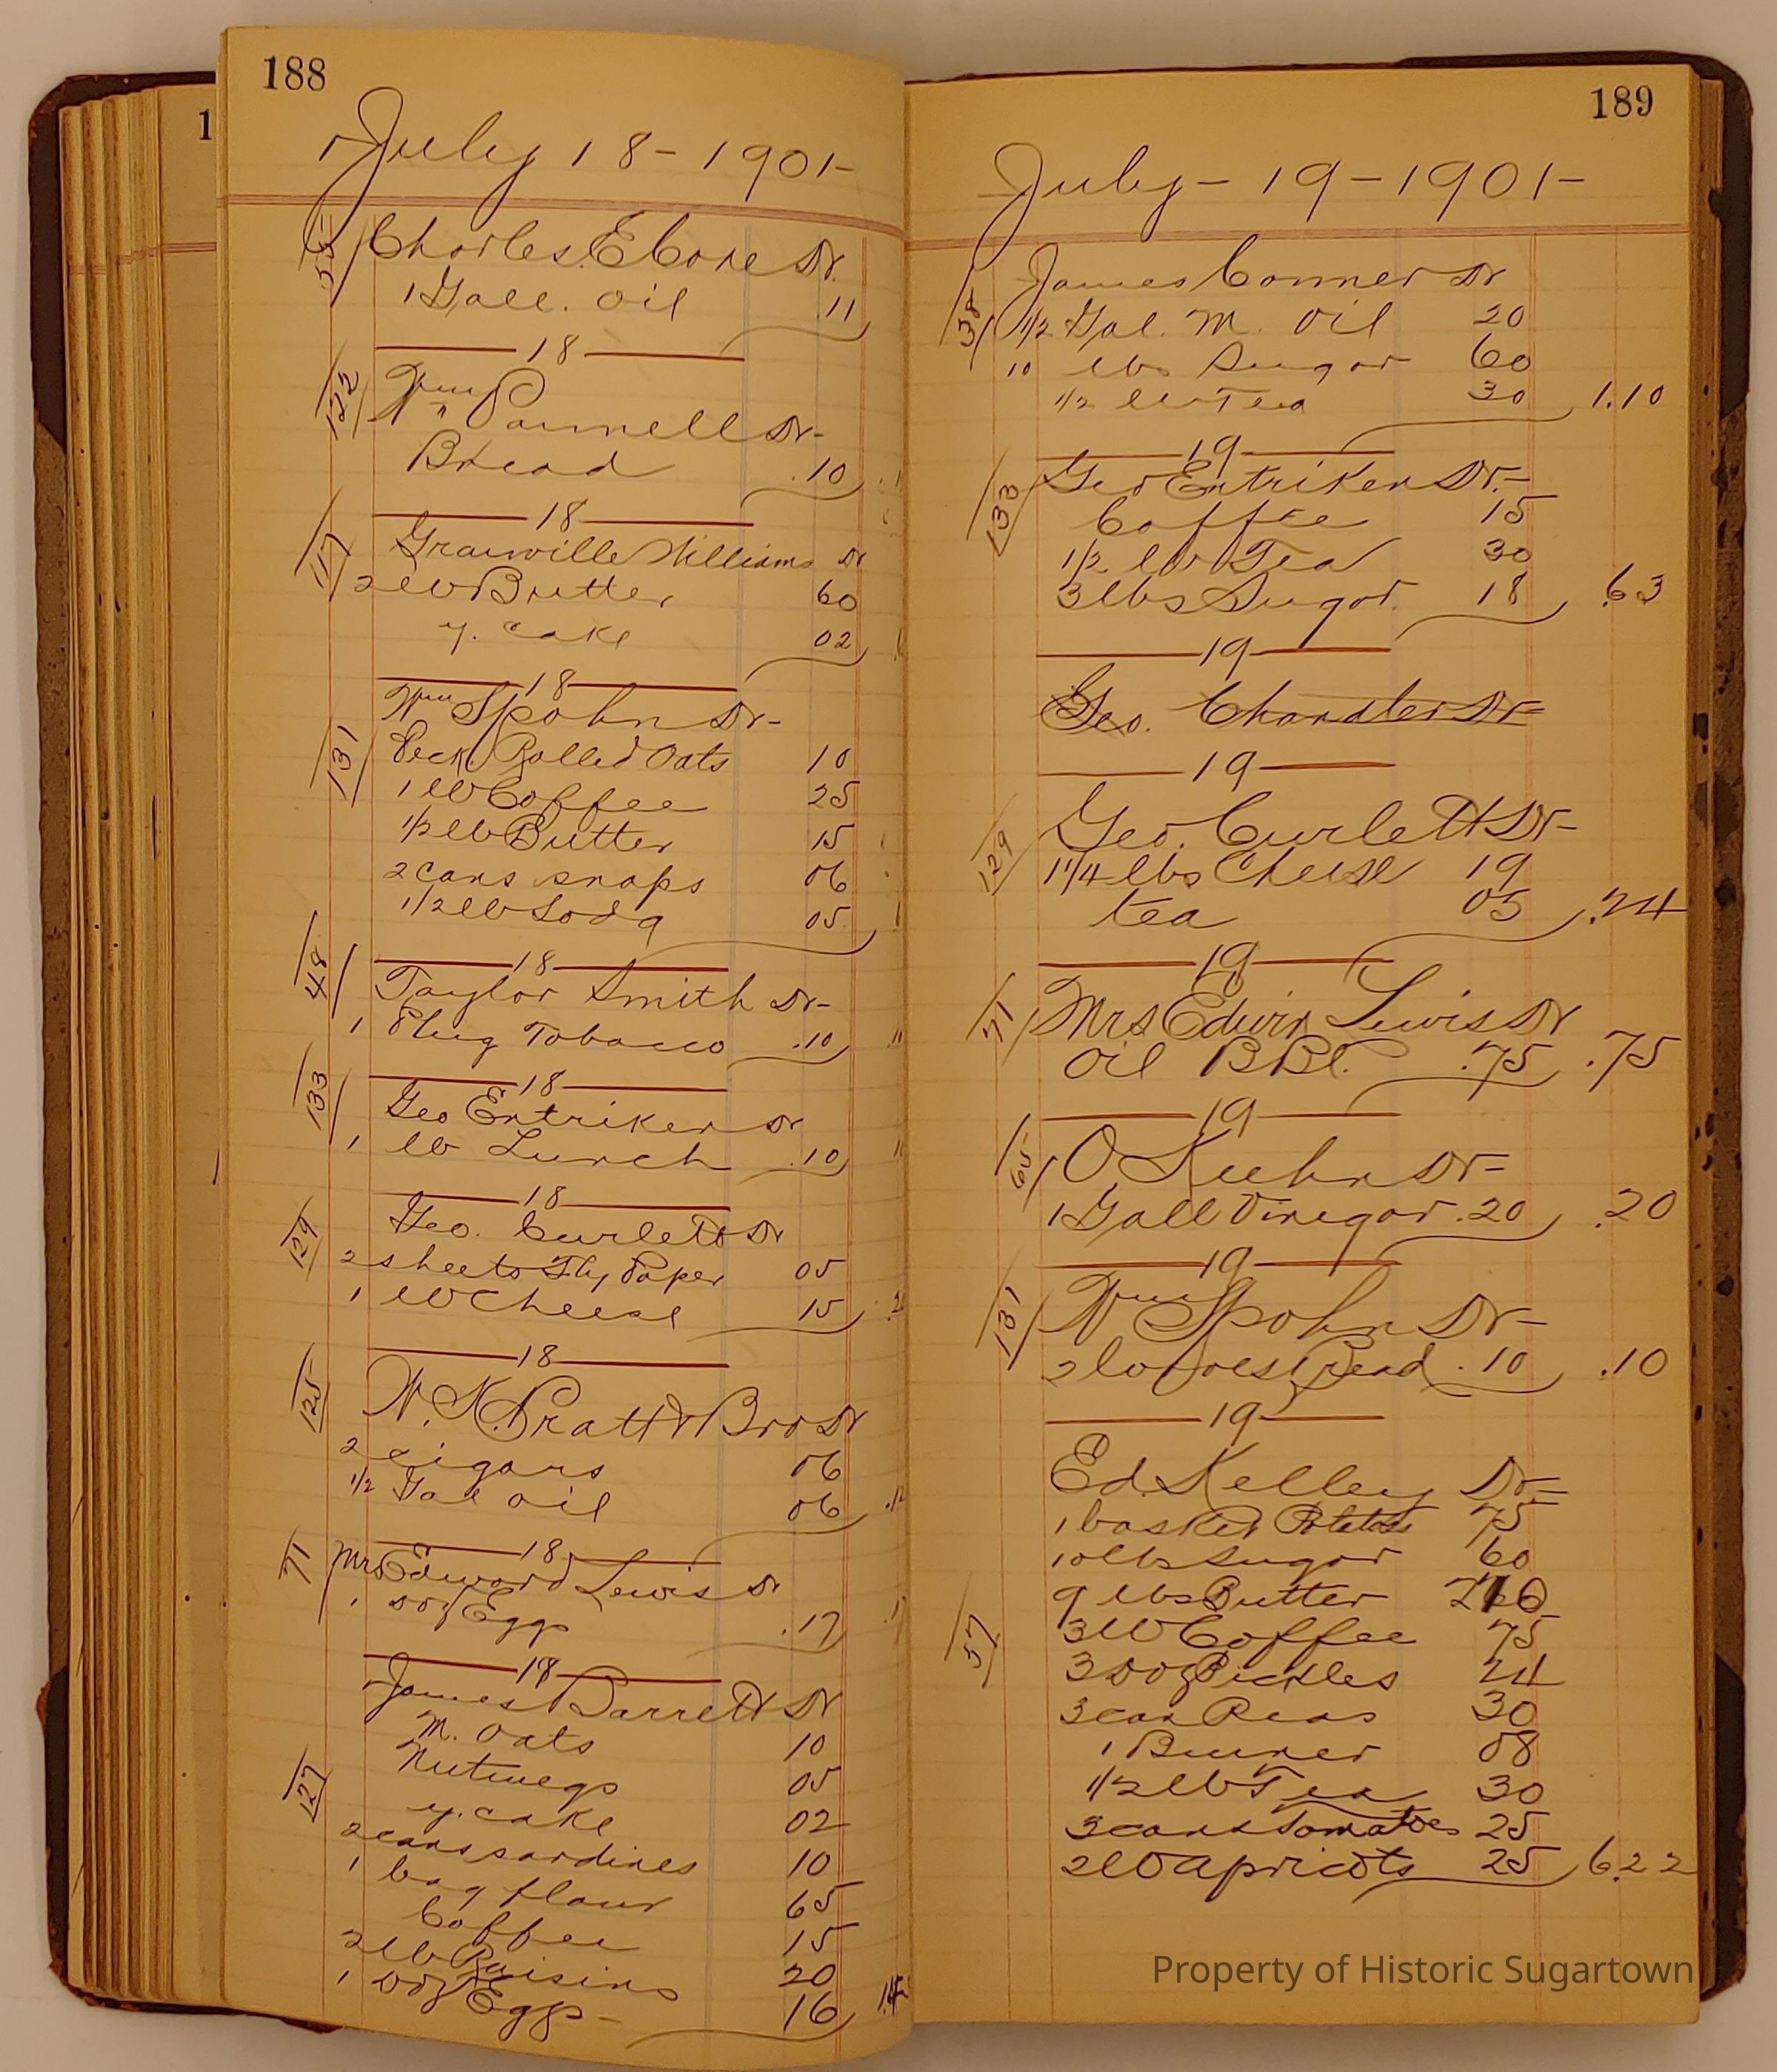 188
July 18 - 1901 -
Charles E Cone Dr.
1 Gall. Oil .11
18
122
Wm Pannell Dr -
Bread .10
18
117
Granville Williams Dr
2 lb Butter 60
y. cake 02
18
Wm Spohn Dr -
131
Peck Rolled Oats 10
1 lb Coffee 25
1/2 lb Butter 15
2 cans snaps 06
1/2 lb Soda 05
18
48
Taylor Smith Dr -
1 Plug Tobacco .10
18
133
Geo Entriken Dr
1 lb Lunch .10
18
129
Geo. Curlett Dr
2 sheets Fly Paper 05
1 lb Cheese 15
18
125
W. K. Pratt & Bro Dr
2 cigars 06
1/2 Gal oil 06
18
71
Mrs Edward Lewis Dr
1 Doz Eggs .17
18
James Barrett Dr
M. Oats 10
Nutmegs 05
127
y. cake 02
2 cans sardines 10
1 bag flour 65
Coffee 15
2 lb Raisins 20
1 Doz Eggs - 16
189
July - 19 - 1901 -
James Conner Dr
38
1/2 Gal. M. Oil 20
10 lbs Sugar 60
1/2 lb Tea 30 1.10
19
133
Geo Entriken Dr. -
Coffee 15
1/2 lb Tea 30
3 lbs Sugar. 18 .63
19
Geo. Chandler Dr
19
129
Geo. Curlett Dr -
1 1/4 lbs Cheese 19
tea 05 .24
19
71
Mrs Edwin Lewis Dr
Oil BBl. .75 .75
19
65
O Kuhn Dr -
1 Gall Vinegar .20 .20
19
131
Wm Spohn Dr -
2 loaves Bread .10 .10
19
Ed. Kelley Dr
1 basket Potatoes 75
10 lbs Sugar 60
9 lbs Butter
57
3 lb Coffee 75
3 Doz Pickles 24
3 can Peas 30
1 Burner 08
1/2 lb Tea 30
3 cans Tomatoes 25
2 lb apricots 25 6.22
Property of Historic Sugartown